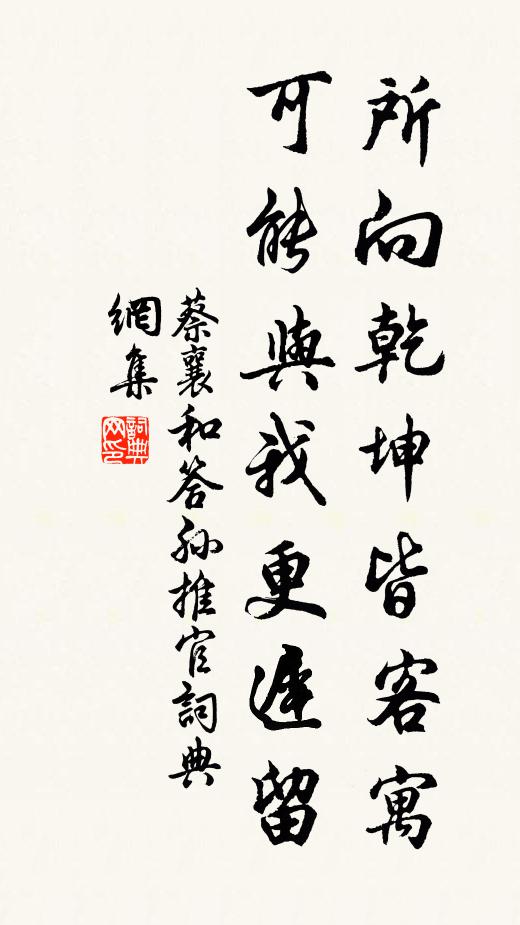 所向乾坤皆客寓
可能與我更遲留
蔡襄和答孙推官詞典
網集
詞典
网印